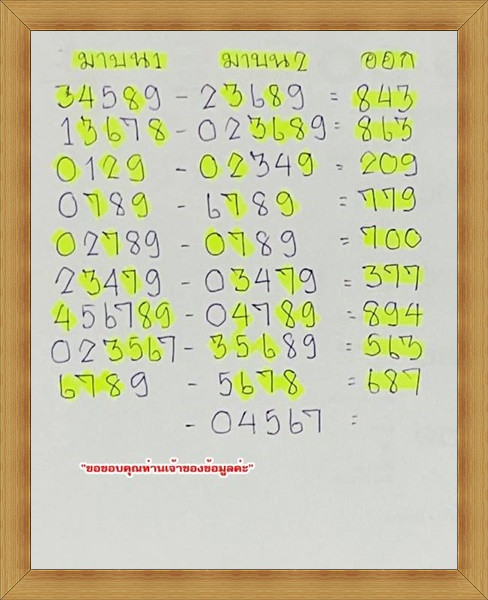 มาบน1 มาบน2 ออก
34589 - 23689 = 843
13678 - 023689 = 863
0129 - 02349 = 209
0789 - 6789 = 779
02789 - 0789 = 700
23479 - 03479 = 377
456789 - 04789 = 894
023567 - 35689 = 563
6789 - 5678 = 687
- 04567 =
"ขอขอบคุณท่านเจ้าของข้อมูลค่ะ"